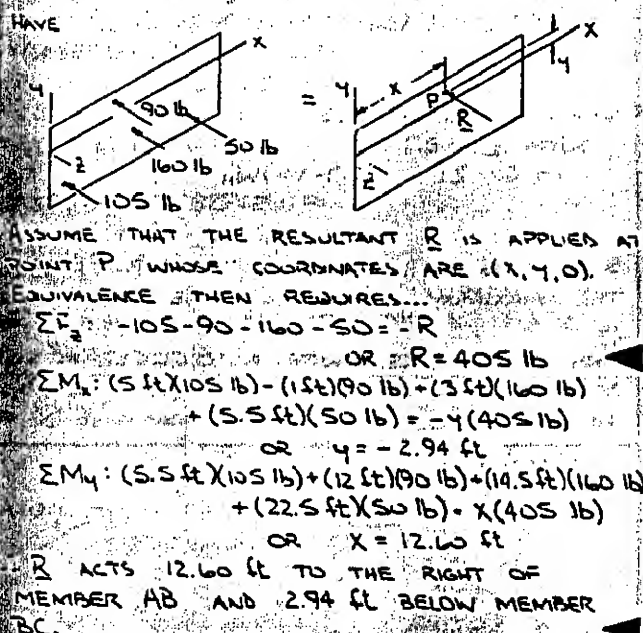 HAVE
X
Y
90 lb
50 lb
160 lb
Z
105 lb
=
X
Y
Y
X
P
R
Z
ASSUME THAT THE RESULTANT R IS APPLIED AT
POINT P WHOSE COORDINATES ARE (X, Y, 0).
EQUIVALENCE THEN REQUIRES...
ΣF_z: -105-90-160-50=-R
OR R=405 lb
ΣM_x: (5 ft)(105 lb)-(1 ft)(90 lb)+(3 ft)(160 lb)
+(5.5 ft)(50 lb)=-Y(405 lb)
OR Y=-2.94 ft
ΣM_y: (5.5 ft)(105 lb)+(12 ft)(90 lb)+(14.5 ft)(160 lb)
+(22.5 ft)(50 lb)=X(405 lb)
OR X=12.60 ft
R ACTS 12.60 ft TO THE RIGHT OF
MEMBER AB AND 2.94 ft BELOW MEMBER
BC.